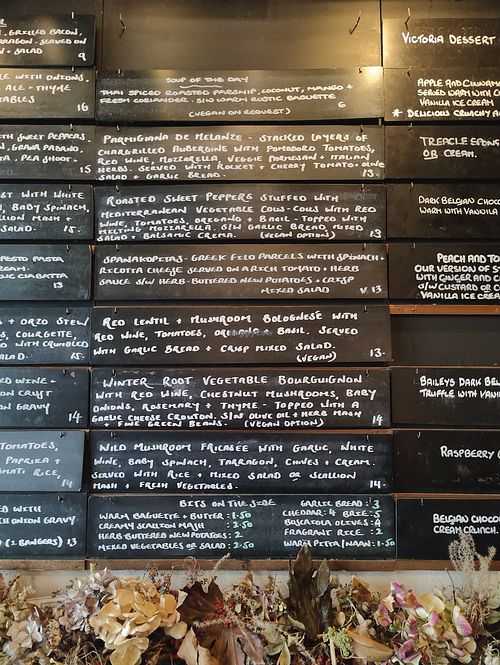 GRILLED BACON,
RAGON. SERVED ON
+ SALAD 9
LE WITH ONIONS.
ALE + THYME
TABLES 16
TH SWEET PEPPERS.
PEA SHOOT.
15
ST WITH WHITE
BABY SPINACH,
LLION MASH +
SALAD. 15.
PESTO PASTA
REAM.
CIABATTA
13
+ ORZO STEW
COURGETTE
WITH CRUMBLED
SALAD. 15.
ED WINE +
ON CRUST
ON GRAVY
14
TOMATOES,
PAPRIKA +
RICE.
14
ED WITH
ONION GRAVY
(2 BANGERS) 13
SOUP OF THE DAY
THAI SPICED ROASTED PARSNIP, COCONUT, MANGO +
FRESH CORIANDER. S/W WARM RUSTIC BAGUETTE
6
(VEGAN ON REQUEST)
PARMIGIANA DE MELANZE - STACKED LAYERS OF
CHARGRILLED AUBERGINE WITH POMODORO TOMATOES,
RED WINE, MOZZARELLA, VEGGIE PARMESAN + ITALIAN
HERBS. SERVED WITH ROCKET + CHERRY TOMATO + OLIVE
SALAD + GARLIC BREAD. 13.
ROASTED SWEET PEPPERS STUFFED WITH
MEDITERRANEAN VEGETABLE COUS-COUS WITH RED
WINE, TOMATOES, OREGANO + BASIL - TOPPED WITH
MELTING MOZZARELLA. S/W GARLIC BREAD, MIXED
SALAD + BALSAMIC CREMA. (VEGAN OPTION) 13
SPANAKOPITAS - GREEK FILO PARCELS WITH SPINACH +
RICOTTA CHEESE SERVED ON A RICH TOMATO + HERB
SAUCE S/W HERB-BUTTERED NEW POTATOES + CRISP
MIXED SALAD V 13
RED LENTIL + MUSHROOM BOLOGNESE WITH
RED WINE, TOMATOES, OREGANO + BASIL. SERVED
WITH GARLIC BREAD + CRISP MIXED SALAD.
(VEGAN) 13.
WINTER ROOT VEGETABLE BOURGUIGNON
WITH RED WINE, CHESTNUT MUSHROOMS, BABY
ONIONS, ROSEMARY + THYME - TOPPED WITH A
GARLIC CHEESE CROUTON. S/W OLIVE OIL + HERB MASH
+ FINE GREEN BEANS. (VEGAN OPTION) 14
WILD MUSHROOM FRICASÉE WITH GARLIC, WHITE
WINE, BABY SPINACH, TARRAGON, CHIVES + CREAM.
SERVED WITH RICE + MIXED SALAD OR SCALLION
MASH + FRESH VEGETABLES. 14.
BITS ON THE SIDE
WARM BAGUETTE + BUTTER: 1.50
CREAMY SCALLION MASH : 2.50
HERB BUTTERED NEW POTATOES : 2
MIXED VEGETABLES OR SALAD : 2.50
GARLIC BREAD : 3
CHEDDAR: 4 BRIE: 5
BOSCAIOLA OLIVES : 4
FRAGRANT RICE : 2
WARM PITTA/NAAN : 1.50
VICTORIA DESSERT
APPLE AND CINNAM
SERVED WARM WITH C
VANILLA ICE CREAM
* DELICIOUS CRUNCHY A
TREACLE SPONG
OR CREAM.
DARK BELGIAN CHOCO
WARM WITH VANILLA
PEACH AND TO
OUR VERSION OF ST
WITH GINGER AND C
S/W CUSTARD OR C
VANILLA ICE CREA
BAILEYS DARK BEL
TRUFFLE WITH VANI
RASPBERRY
BELGIAN CHOCO
CREAM CRUNCH.